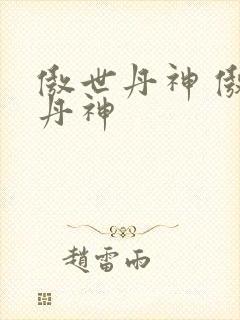 傲世丹神 傲
丹神
趙雷雨